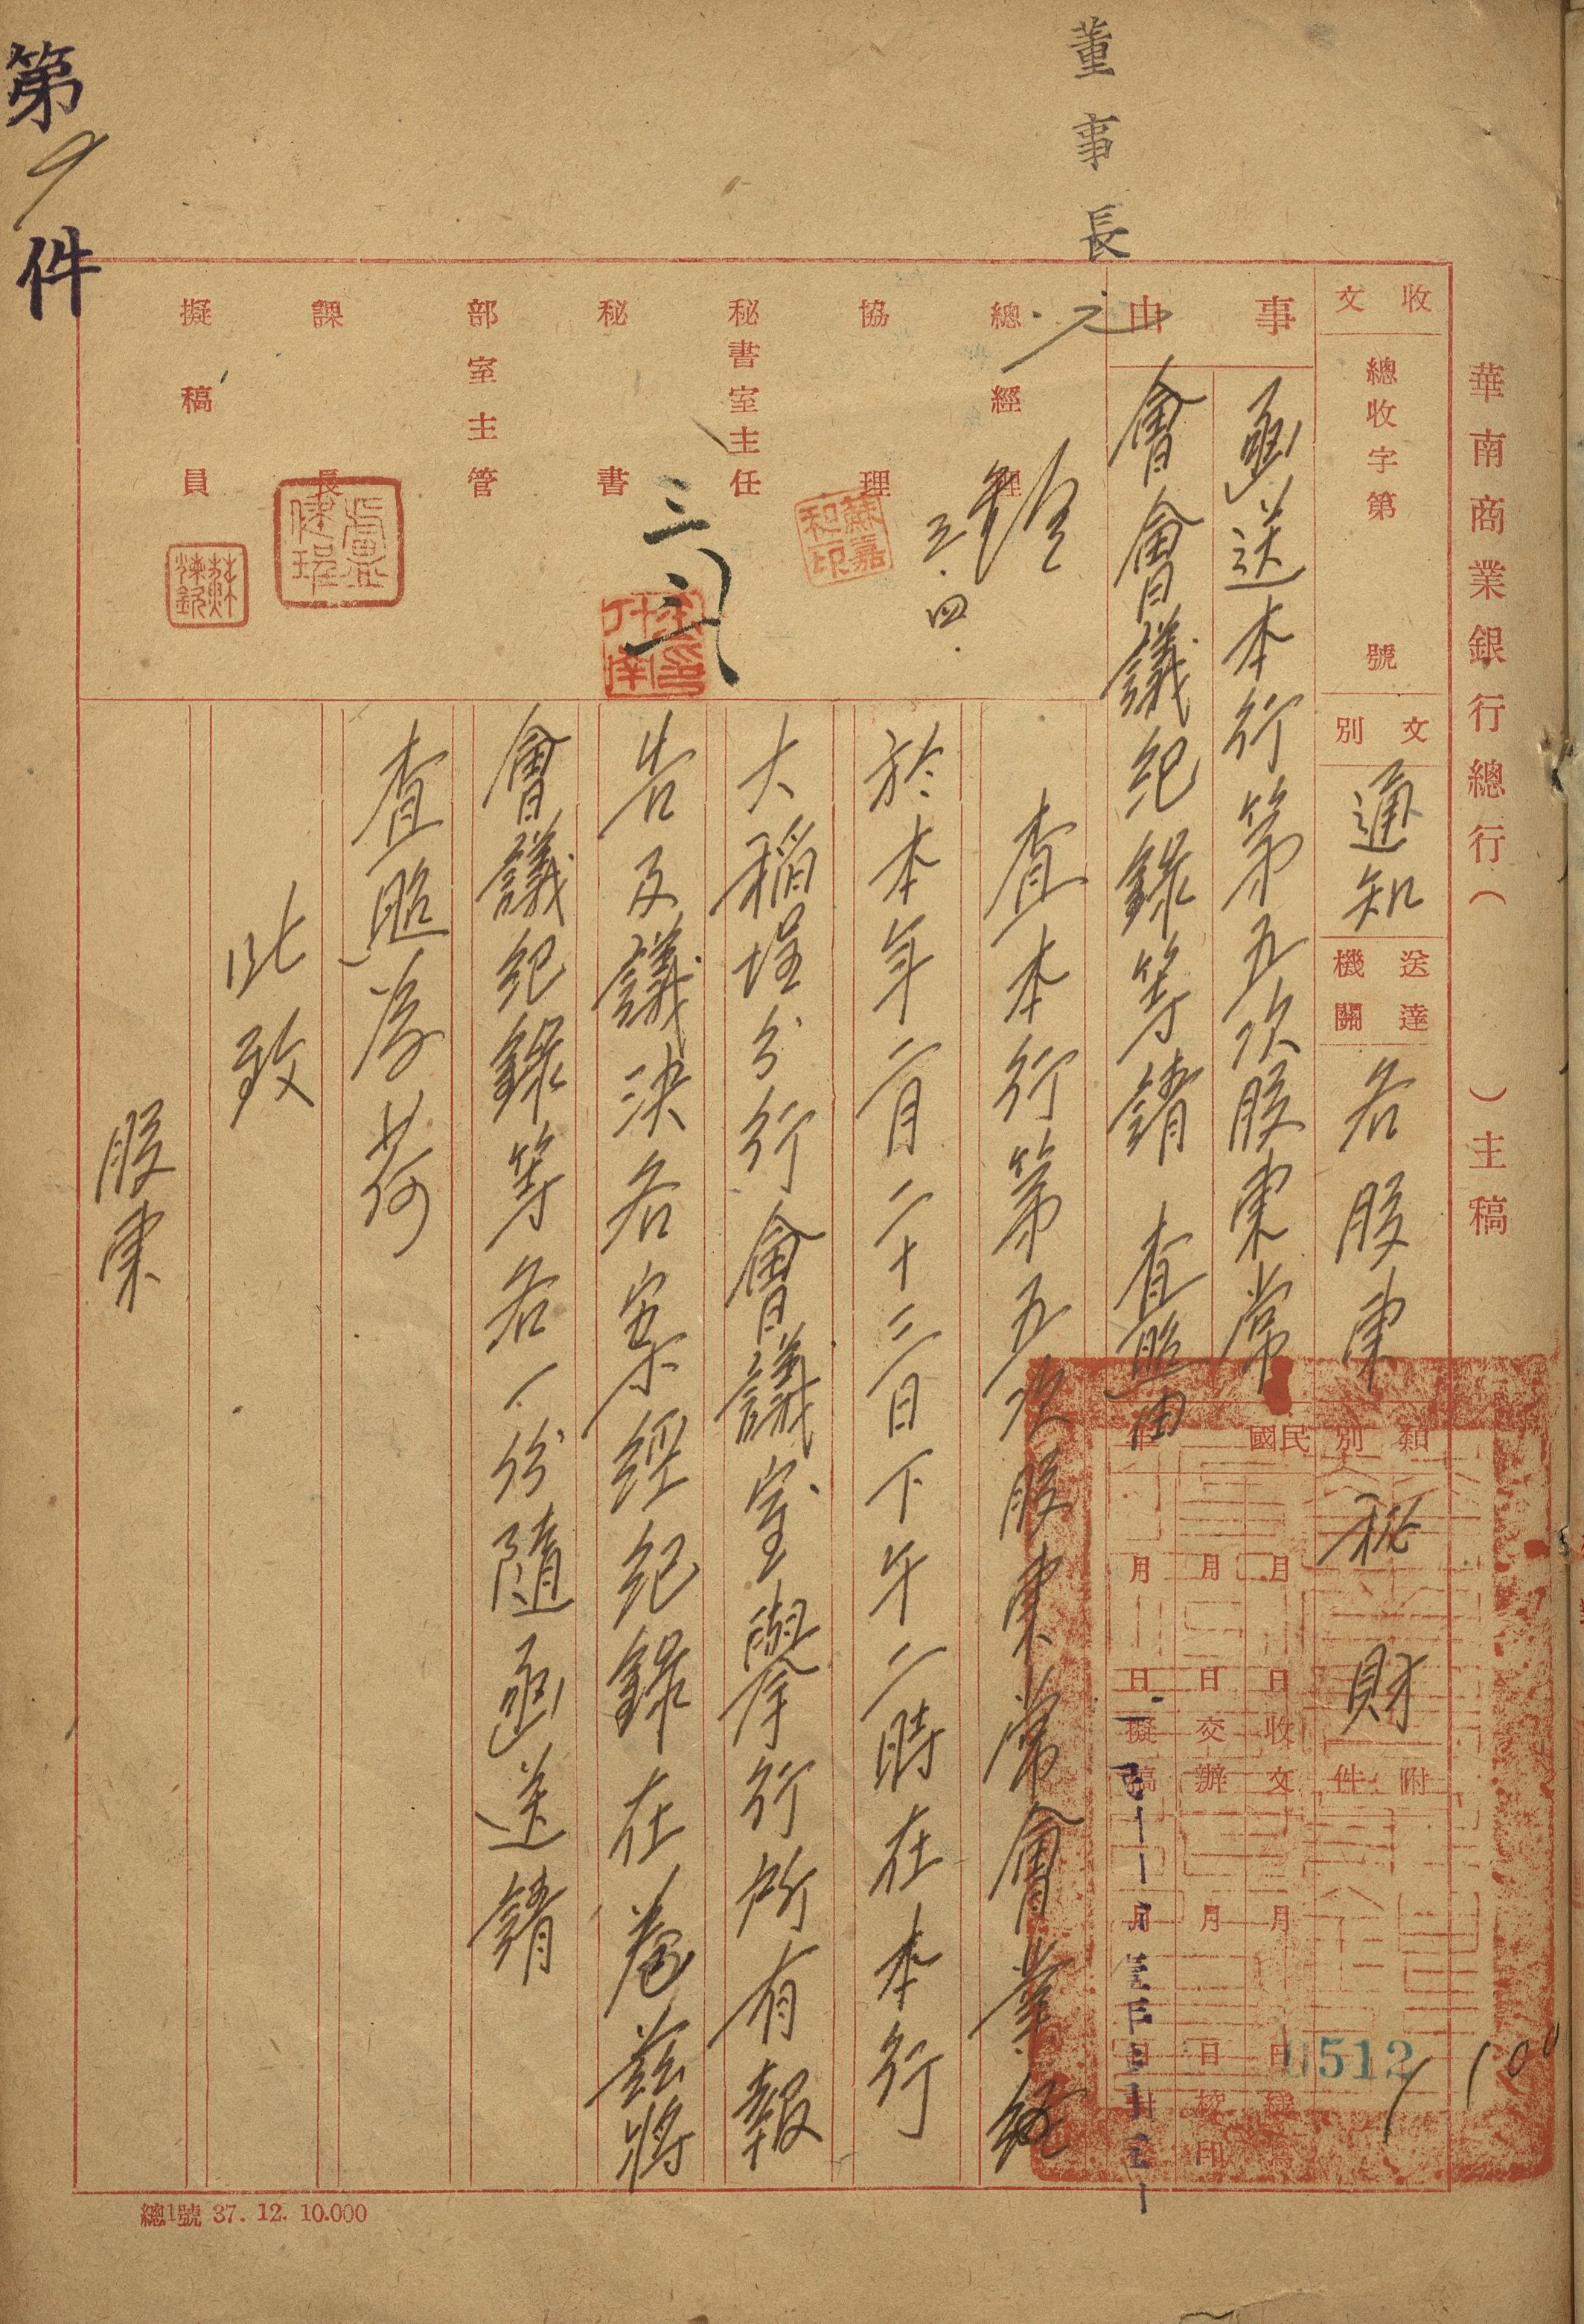 華南商業銀行總行（　　）主稿
收文
總收字第　　號
文別
通知
送達機關
各股東
類別
秘
財
附件
事由
函送本行第五次股東常
會會議紀錄等請　查照由
民國　年
月　日收文
月　日交辦
月　日擬稿
董事長
總經理
三.四.
協理
蘇嘉和印
秘書室主任
秘書
部室主管
課長
擬稿員
查本行第五次股東常會業經
於本年二月二十三日下午二時在本行
大稻埕分行會議室舉行所有報
告及議決各案經紀錄在卷茲將
會議紀錄等各一份隨函送請
查照為荷
此致
股東
第　件
512
總1號 37. 12. 10.000